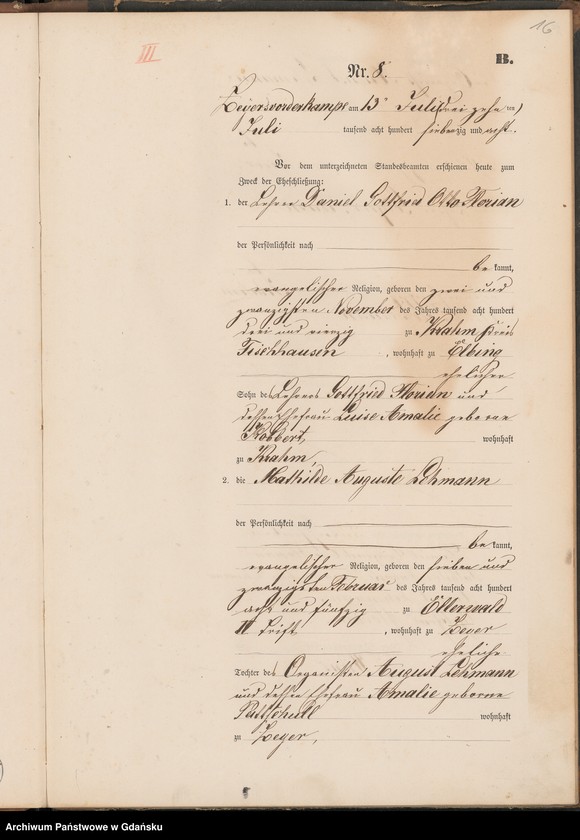 16
III
B.
Nr. 8.
Zeyersvorderkampe am 13ten Juli (drei zehnten)
Juli tausend acht hundert siebenzig und acht.
Vor dem unterzeichneten Standesbeamten erschienen heute zum
Zweck der Eheschließung:
1. der Lehrer Daniel Gottfried Otto Florian
der Persönlichkeit nach
be kannt,
evangelischer Religion, geboren den zwei und
zwanzigsten November des Jahres tausend acht hundert
drei und vierzig zu Krahm Kreis
Fischhausen, wohnhaft zu Elbing
ehelicher
Sohn des Lehrers Gottfried Florian und
dessen Ehefrau Luise Amalie geborene
Kobbert, wohnhaft
zu Krahm,
2. die Mathilde Auguste Lehmann
der Persönlichkeit nach
be kannt,
evangelischer Religion, geboren den sieben und
zwanzigsten Februar des Jahres tausend acht hundert
acht und fünfzig zu Ellerwald
Trift, wohnhaft zu Zeyer
eheliche
Tochter des Organisten August Lehmann
und dessen Ehefrau Amalie geborene
wohnhaft
zu Zeyer,
Archiwum Państwowe w Gdańsku